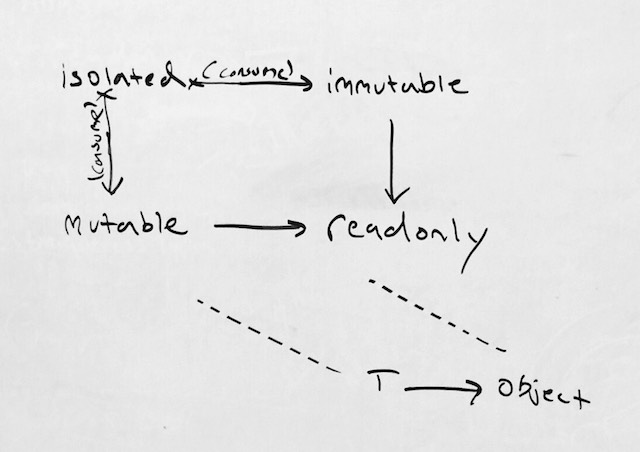 isolated (consume) immutable
(consume)
mutable readonly
T Object